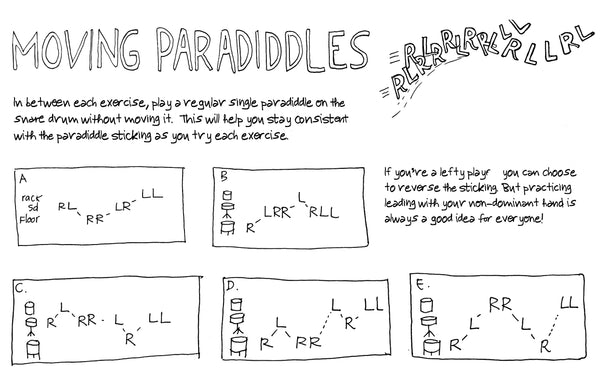 MOVING PARADIDDLES
RLRRLRLL
RLRRLRLLRLLRL
In between each exercise, play a regular single paradiddle on the
snare drum without moving it. This will help you stay consistent
with the paradiddle sticking as you try each exercise.
If you're a lefty playr you can choose
to reverse the sticking. But practicing
leading with your non-dominant hand is
always a good idea for everyone!
A
rack
sd
Floor
RL RR LR LL
B
R LRR L RLL
C.
R L RR L R LL
D.
R L RR L R LL
E.
R L RR L R LL